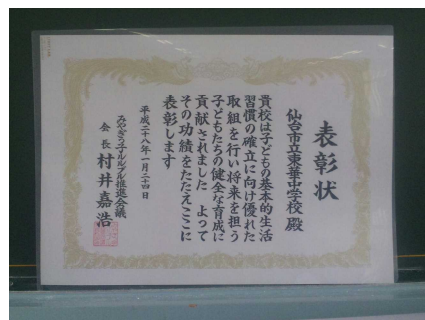 表彰状
仙台市立東華中学校 殿
貴校は子どもの基本的生活
習慣の確立に向け優れた
取組を行い将来を担う
子どもたちの健全な育成に
貢献されました よって
その功績をたたえここに
表彰します
平成二十八年一月二十四日
みやぎっ子ルルブル推進会議
会長 村井嘉浩